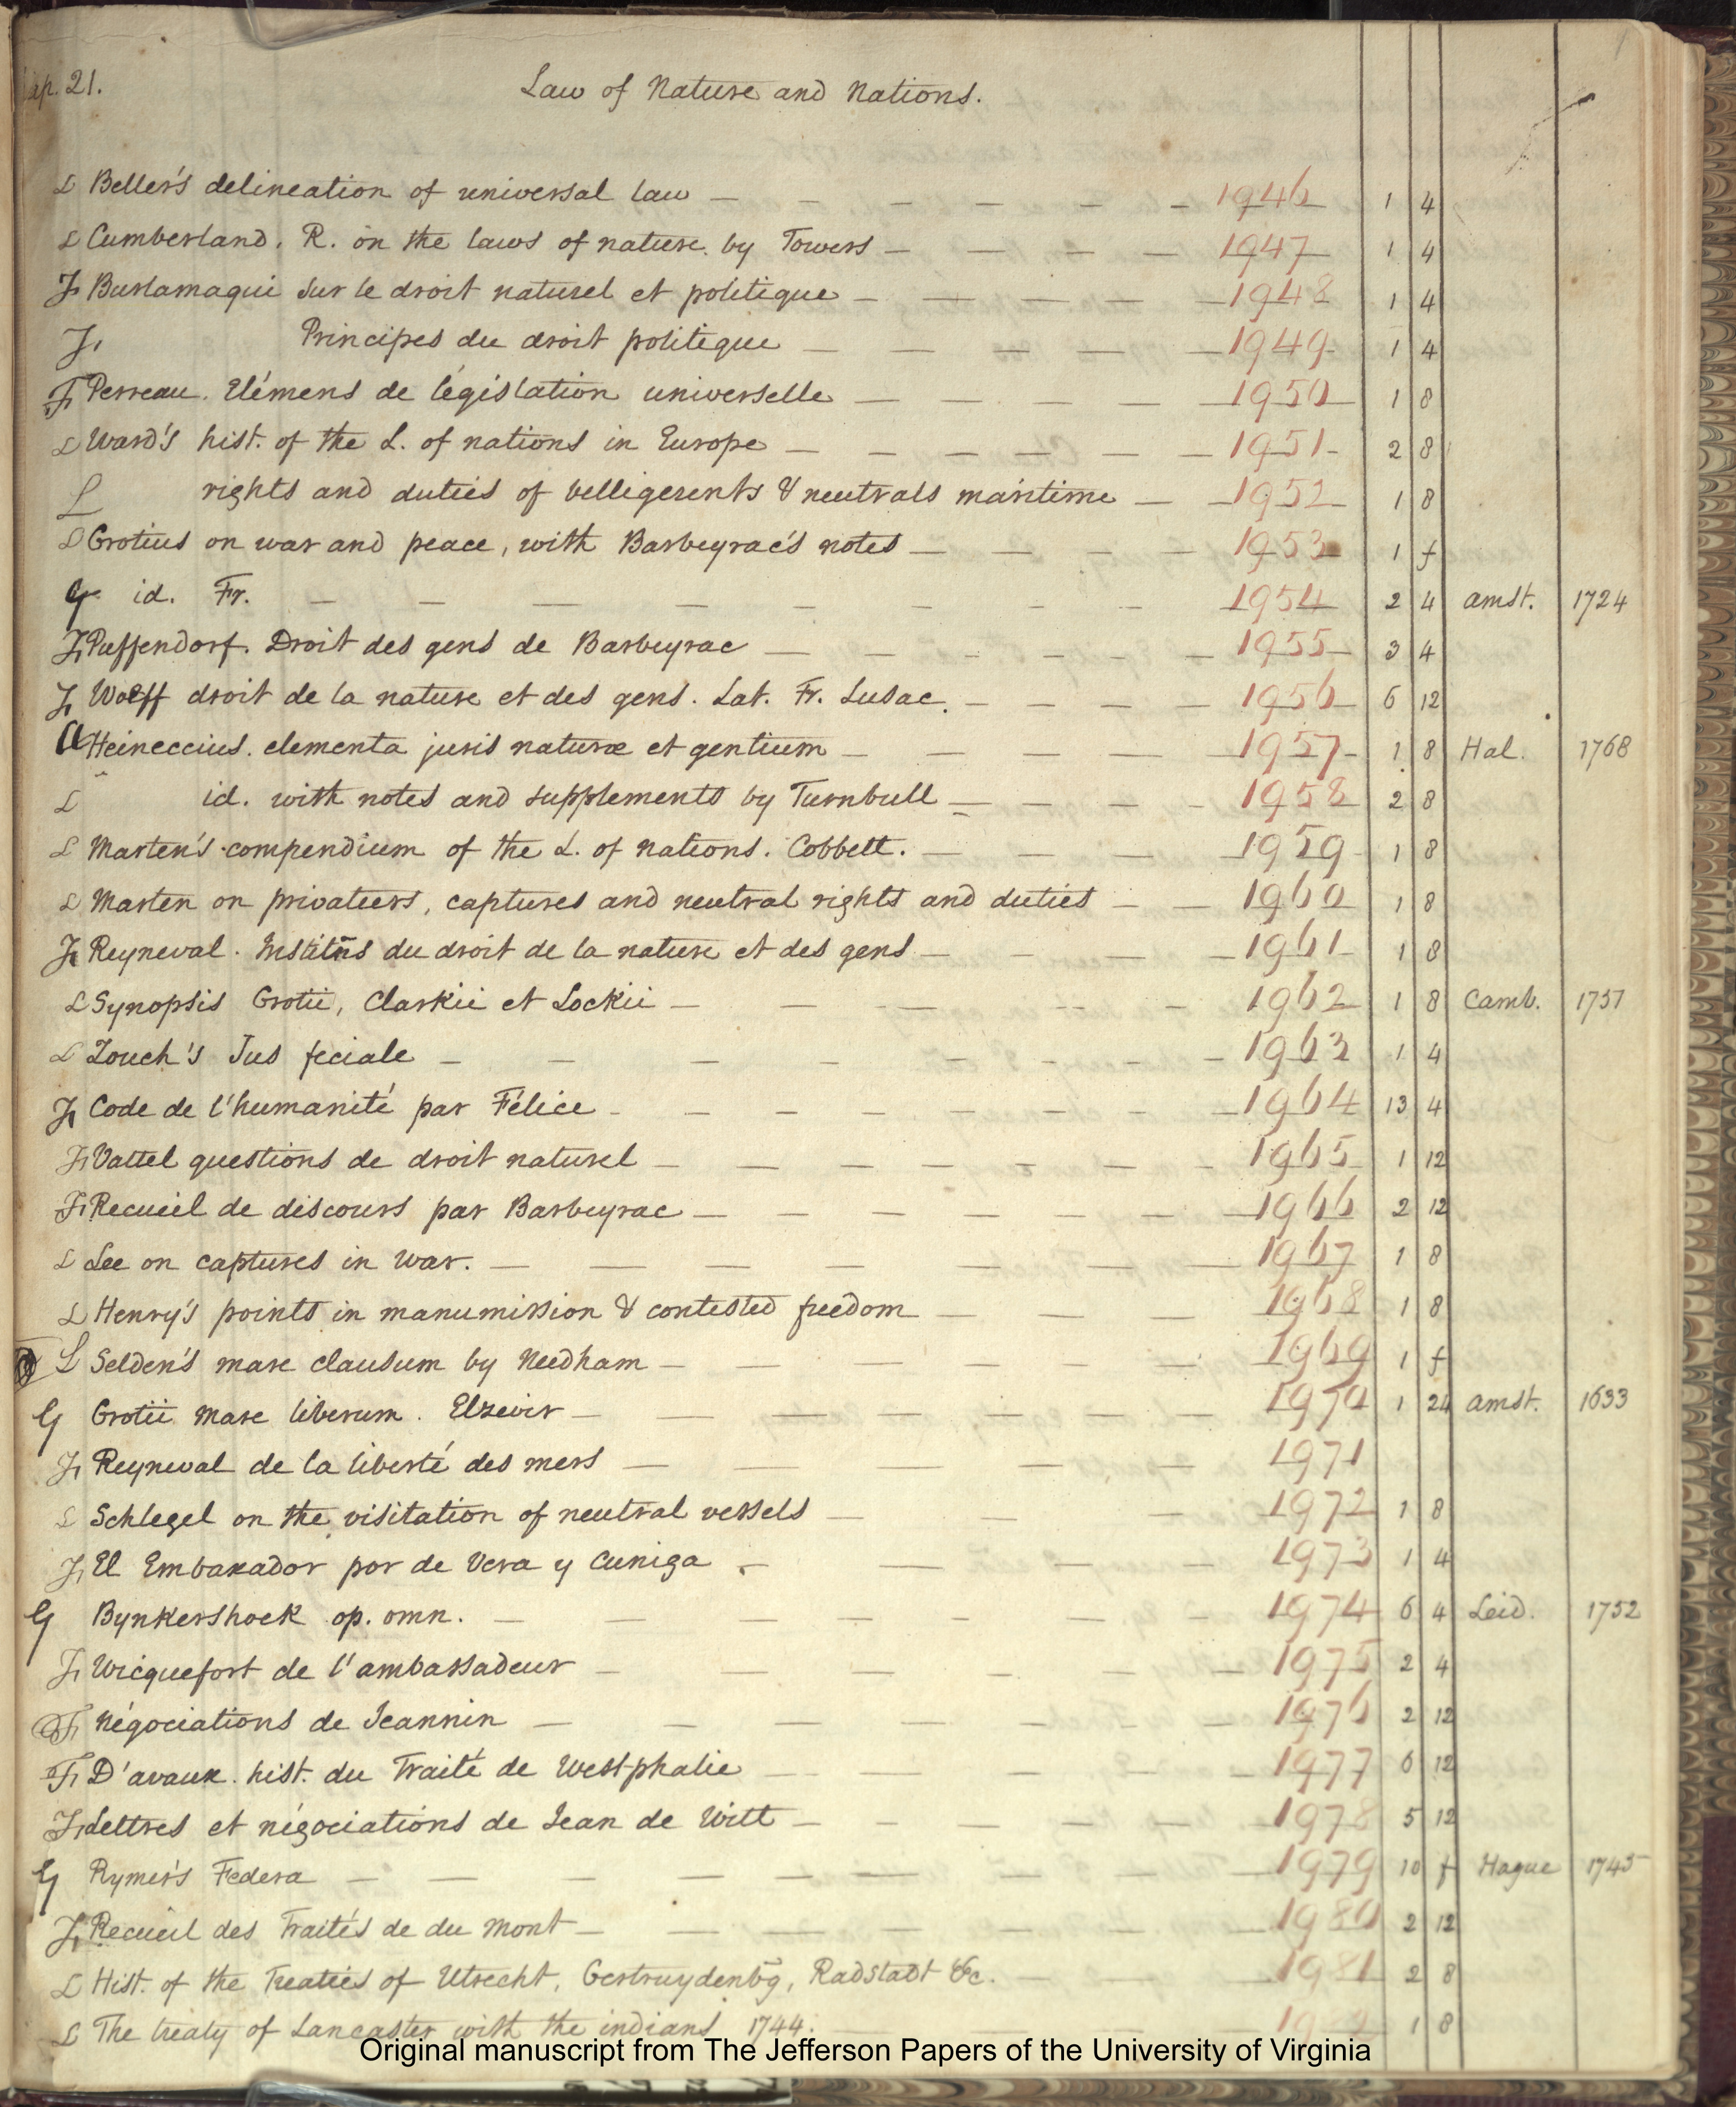 ap. 21. Law of Nature and Nations.
L Beller's delineation of universal law — — — — — — 1946 1 4
L Cumberland. R. on the laws of nature. by Towers — — — — 1947 1 4
F Burlamaqui sur le droit naturel et politique — — — — — 1948 1 4
F Principes du droit politique — — — — — 1949 1 4
F Perreau. Elémens de législation universelle — — — — — 1950 1 8
L Ward's hist. of the L. of nations in Europe — — — — — — 1951 2 8
L rights and duties of belligerents & neutrals maritime — — 1952 1 8
L Grotius on war and peace, with Barbeyrac's notes — — — — 1953 1 f
G id. Fr. — — — — — — — — 1954 2 4 Amst. 1724
F Puffendorf. Droit des gens de Barbeyrac — — — — — — 1955 3 4
F Wolff droit de la nature et des gens. Lat. Fr. Lusac. — — — — 1956 6 12
G Heineccius. elementa juris naturæ et gentium — — — — — 1957 1 8 Hal. 1768
L id. with notes and supplements by Turnbull — — — — 1958 2 8
L Marten's compendium of the L. of Nations. Cobbett. — — — — 1959 1 8
L Marten on privateers, captures and neutral rights and duties — — 1960 1 8
F Reyneval. Institñs du droit de la nature et des gens — — — — 1961 1 8
L Synopsis Grotii, Clarkii et Lockii — — — — — — 1962 1 8 Camb. 1751
L Zouch's Jus feciale — — — — — — — — 1963 1 4
F Code de l'humanité par Félice — — — — — — — — 1964 13 4
F Vattel questions de droit naturel — — — — — — — 1965 1 12
F Recueil de discours par Barbeyrac — — — — — — — 1966 2 12
L Lee on captures in war. — — — — — — — 1967 1 8
L Henry's points in manumission & contested freedom — — — 1968 1 8
L Selden's mare clausum by Needham — — — — — — 1969 1 f
G Grotii Mare liberum. Elzevir — — — — — — — 1970 1 24 Amst. 1633
F Reyneval de la liberté des mers — — — — — 1971
L Schlegel on the visitation of neutral vessels — — — 1972 1 8
F El Embaxador por de Vera y Cuniga — — — — 1973 1 4
G Bynkershoek op. omn. — — — — — — — 1974 6 4 Leid. 1752
F Wicquefort de l'ambassadeur — — — — — — 1975 2 4
F Négociations de Jeannin — — — — — — — 1976 2 12
F D'avaux. hist. du Traité de Westphalie — — — — — 1977 6 12
F Lettres et négociations de Jean de Witt — — — — — — 1978 5 12
G Rymer's Federa — — — — — — — — 1979 10 f Hague 1745
F Recueil des Traités de du Mont — — — — — — — 1980 2 12
L Hist. of the Treaties of Utrecht, Gertruydenbg, Radstadt &c. — — 1981 2 8
L The treaty of Lancaster with the indians 1744. — — 1982 1 8
Original manuscript from The Jefferson Papers of the University of Virginia